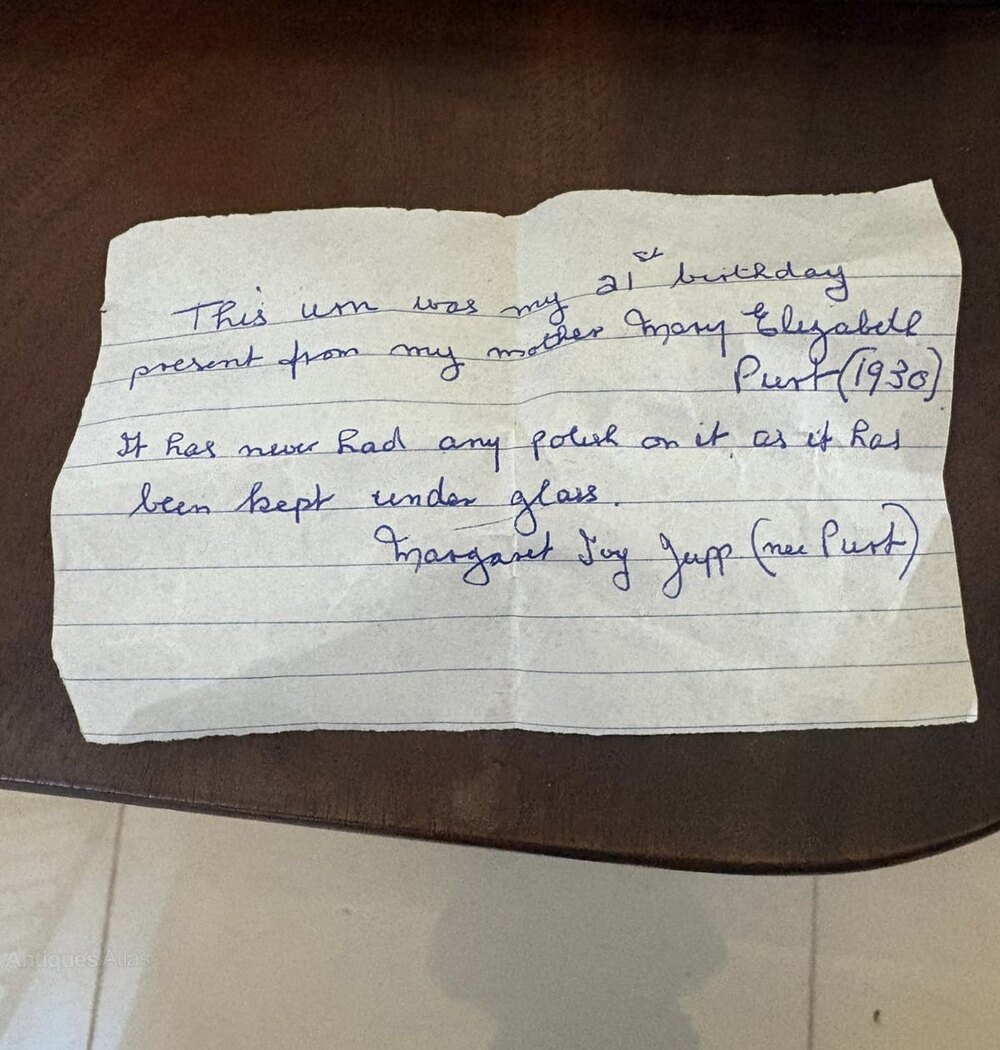 This urn was my 21st birthday
present from my mother Mary Elizabeth
Purt (1930)
It has never had any polish on it as it has
been kept under glass.
Margaret Joy Jupp (nee Purt)
Antiques Atlas